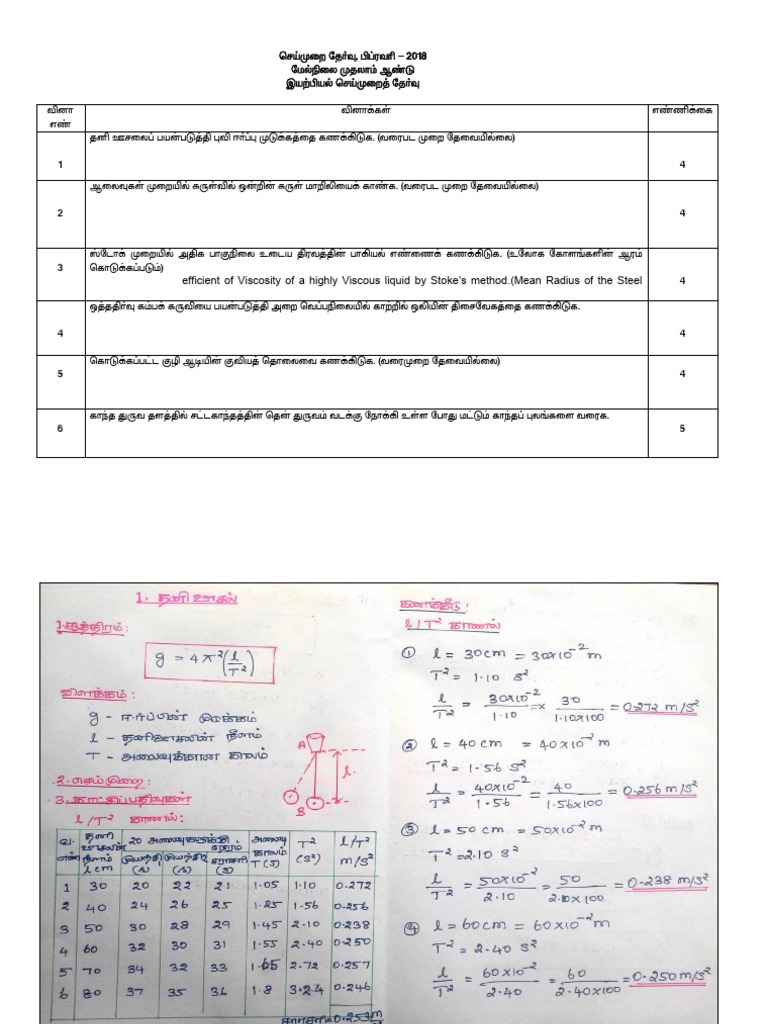 செய்முறை தேர்வு, பிப்ரவரி – 2018
மேல்நிலை முதலாம் ஆண்டு
இயற்பியல் செய்முறைத் தேர்வு
வினா எண்
வினாக்கள்
எண்ணிக்கை
1
தனி ஊசலைப் பயன்படுத்தி புவி ஈர்ப்பு முடுக்கத்தை கணக்கிடுக. (வரைபட முறை தேவையில்லை)
4
2
ஆலைவுகள் முறையில் சுருள்வில் ஒன்றின் சுருள் மாறிலியைக் காண்க. (வரைபட முறை தேவையில்லை)
4
3
ஸ்டோக் முறையில் அதிக பாகுநிலை உடைய திரவத்தின் பாகியல் எண்ணைக் கணக்கிடுக. (உலோக கோளங்களின் ஆரம்
கொடுக்கப்படும்)
efficient of Viscosity of a highly Viscous liquid by Stoke's method.(Mean Radius of the Steel
4
4
ஒத்ததிர்வு கம்பக் கருவியை பயன்படுத்தி அறை வெப்பநிலையில் காற்றில் ஒலியின் திசைவேகத்தை கணக்கிடுக.
4
5
கொடுக்கப்பட்ட குழி ஆடியின் குவியத் தொலைவை கணக்கிடுக. (வரைமுறை தேவையில்லை)
4
6
காந்த துருவ தளத்தில் சட்டகாந்தத்தின் தென் துருவம் வடக்கு நோக்கி உள்ள போது மட்டும் காந்தப் புலங்களை வரைக.
5
1. தனி ஊசல்
1. சூத்திரம் :
g = 4π² (l/T²)
விளக்கம் :
g - ஈர்ப்பின் முடுக்கம்
l - தனிஊசலின் நீளம்
T - அலைவுக்கான காலம்
A
l
B
2. செய்முறை :
3. காட்சிப்பதிவுகள்
l/T² காணல் :
வ. எண் தனி ஊசலின் நீளம் l cm 20 அலைவுகளுக்கு நேரம் அலைவு காலம் T (s) T² (s²) l/T² m/s²
முயற்சி 1 (s) முயற்சி 2 (s) சராசரி (s)
1 30 20 22 21 1.05 1.10 0.272
2 40 24 26 25 1.25 1.56 0.256
3 50 30 28 29 1.45 2.10 0.238
4 60 32 30 31 1.55 2.40 0.250
5 70 34 32 33 1.65 2.72 0.257
6 80 37 35 36 1.8 3.24 0.246
சராசரி = 0.253 m
கணக்கீடு :
l/T² காணல்
① l = 30 cm = 30x10⁻² m
T² = 1.10 s²
l/T² = 30x10⁻²/1.10 = x 30/1.10x100 = 0.272 m/s²
② l = 40 cm = 40x10⁻² m
T² = 1.56 s²
l/T² = 40x10⁻²/1.56 = 40/1.56x100 = 0.256 m/s²
③ l = 50 cm = 50x10⁻² m
T² = 2.10 s²
l/T² = 50x10⁻²/2.10 = 50/2.10x100 = 0.238 m/s²
④ l = 60 cm = 60x10⁻² m
T² = 2.40 s²
l/T² = 60x10⁻²/2.40 = 60/2.40x100 = 0.250 m/s²